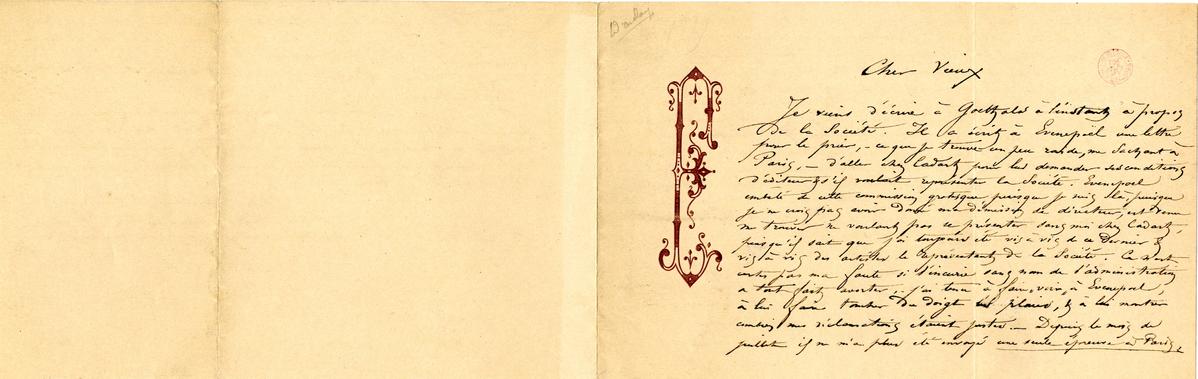 Cher Vieux
Je viens d'écrire à Goethals à l'instant à propos
de la Société. Il a écrit à Evenepoël une lettre
pour le prier, - ce que je trouve un peu raide, me sachant à
Paris, - d'aller chez Cadart pour lui demander ses conditions
d'éditeur & s'il voulait représenter la Société. Evenepoel
embêté de cette commission grotesque puisque je suis là & puisque
je ne crois pas avoir donné ma démission de directeur, est venu
me trouver ne voulant pas se présenter sans moi chez Cadart,
puisqu'il sait que j'ai toujours été vis à vis de ce dernier &
vis à vis des artistes le représentant de la Société. Ce n'est
certes pas ma faute si l'incurie sans nom de l'administration
a tout fait avorter. j'ai tenu à faire voir à Evenepoel,
à lui faire toucher du doigt les plaies, & à lui montrer
combien mes réclamations étaient justes. - Depuis le mois de
juillet il ne m'a plus été envoyé une seule épreuve à Paris,